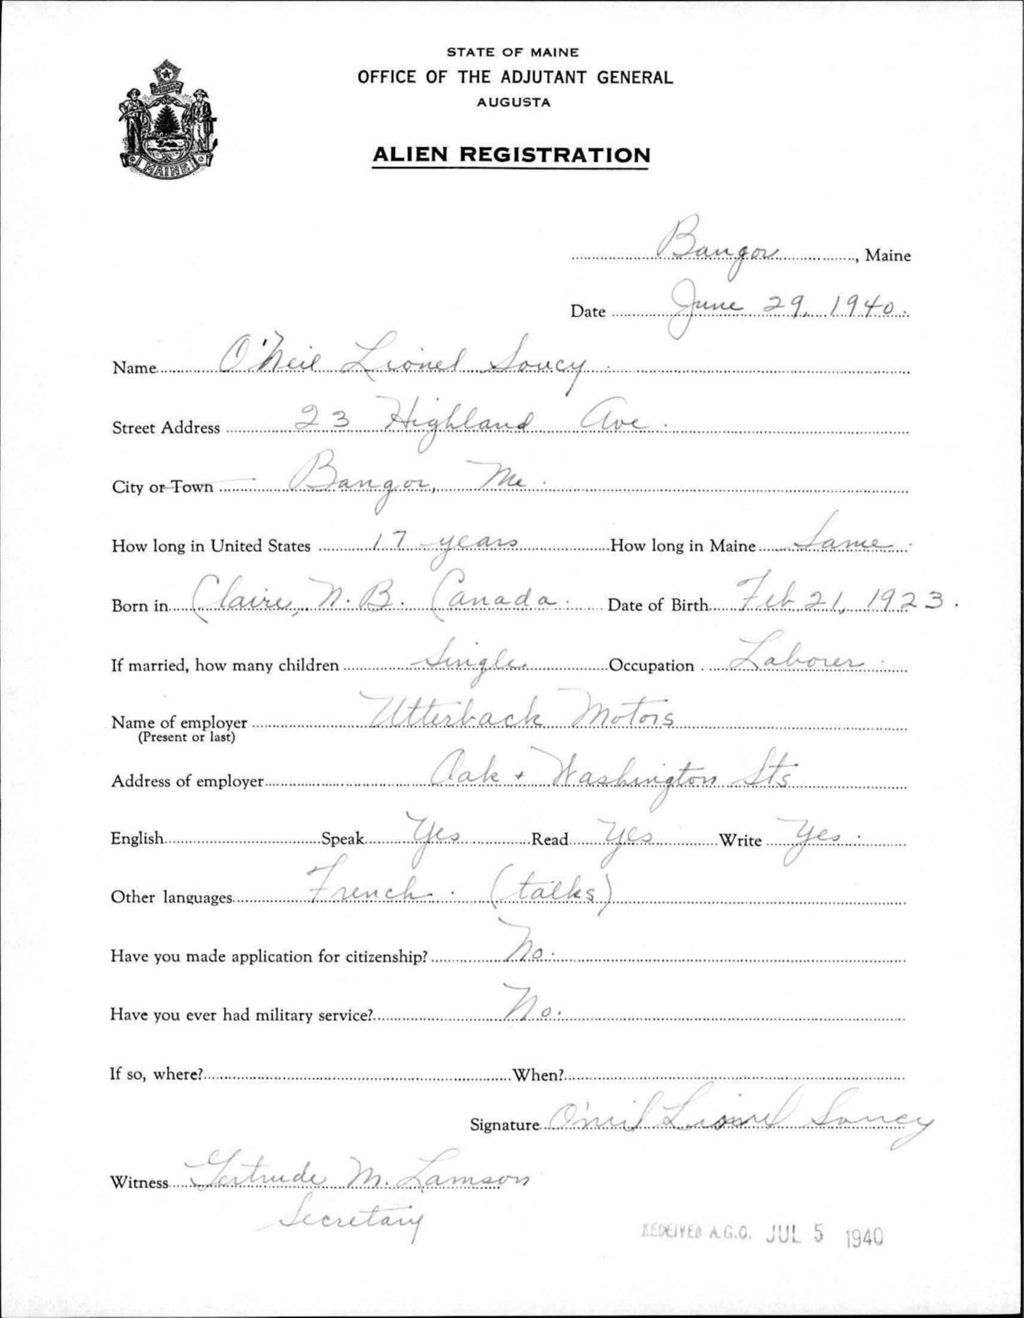 STATE OF MAINE
OFFICE OF THE ADJUTANT GENERAL
AUGUSTA
MAINE
ALIEN REGISTRATION
Bangor, Maine
Date June 29, 1940.
Name O'Neil Lionel Soucy.
Street Address 23 Highland Ave.
City or Town Bangor, Me.
How long in United States 17 years How long in Maine Same.
Born in Claire, N.B. Canada. Date of Birth Feb 21, 1923.
If married, how many children Single Occupation Laborer.
Name of employer Utterback Motors
(Present or last)
Address of employer Oak + Washington Sts
English Speak Yes Read Yes Write Yes.
Other languages French. (talks)
Have you made application for citizenship? No.
Have you ever had military service? No.
If so, where? When?
Signature O'neil Lionel Soucy
Witness Gertrude M. Lamson
Secretary
RECEIVED A.G.O. JUL 5 1940